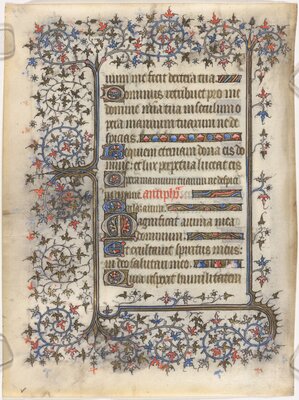 uum me fecit dextera tua.
Domine retribue pro me
domine mīa tua in seculum o
pera manuum tuarum ne de
spicias.
Requiem eternam dona eis do
mine: et lux perpetua luceat eis
Opera manuum tuarum ne despici
as. antiph̄.
Magnificat anima mea
dominum.
Et exultauit spiritus meus:
in deo salutari meo.
Quia respexit humilitatem